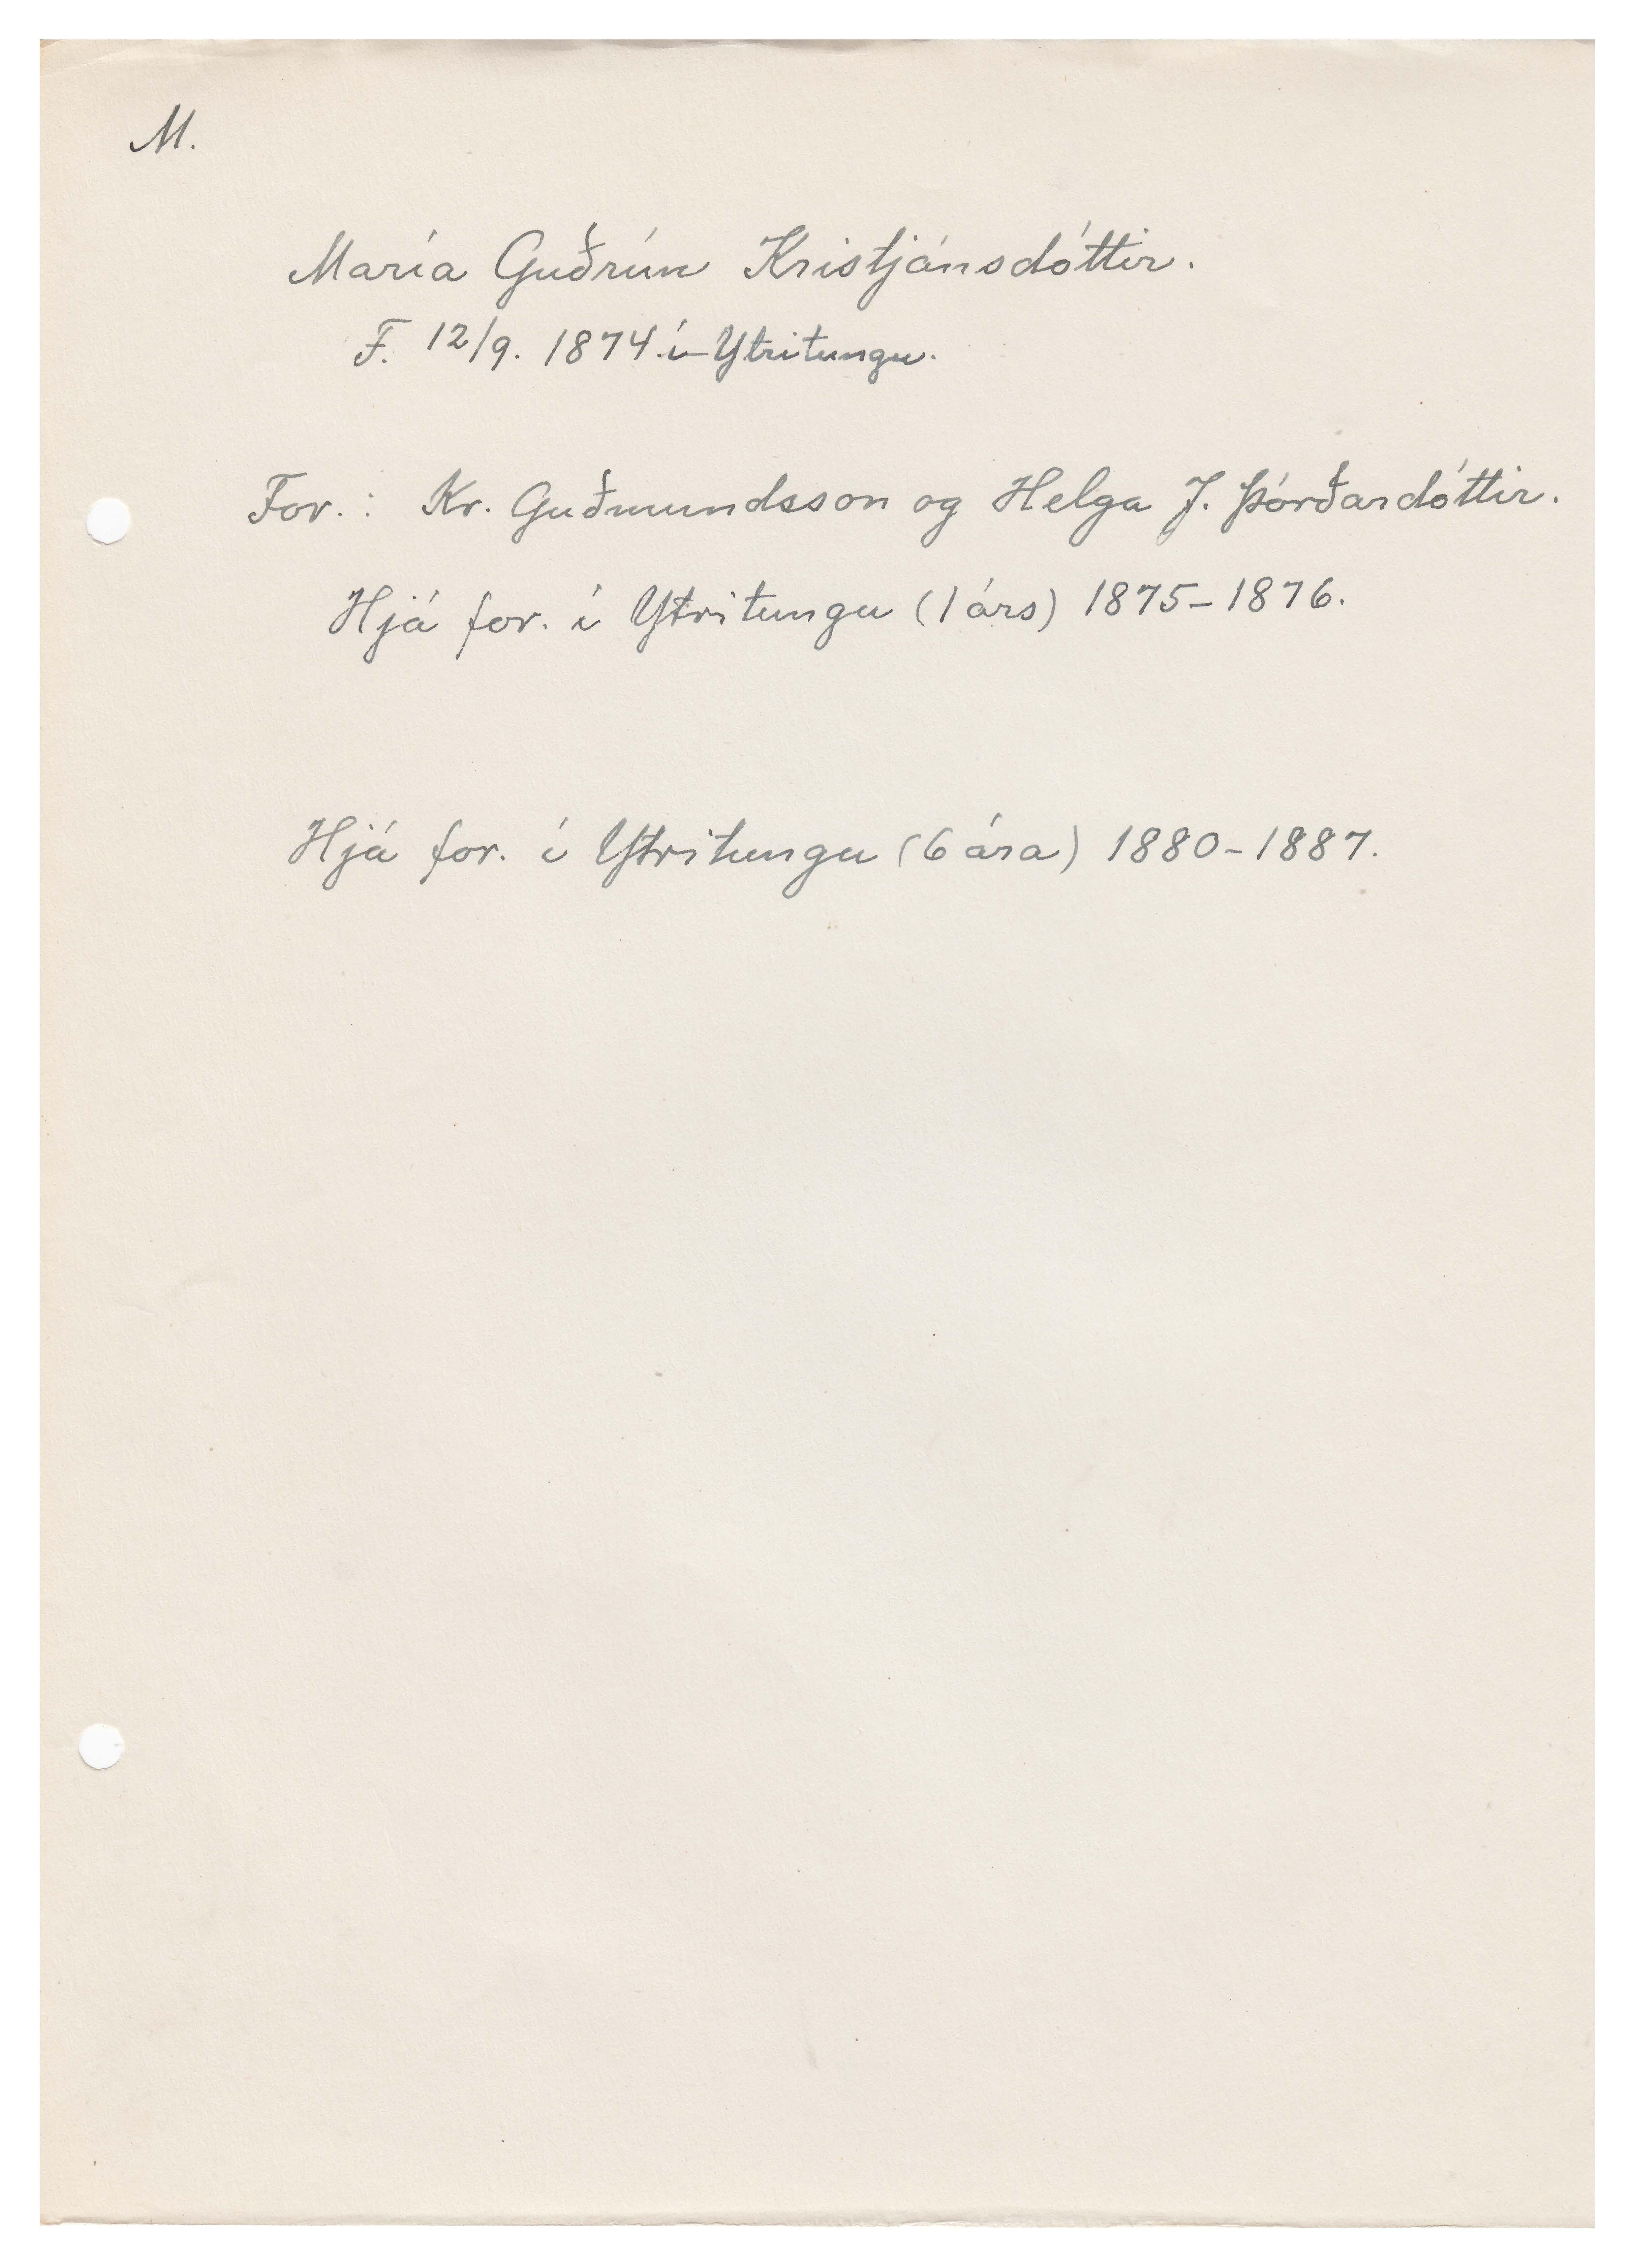 M.
María Guðrún Kristjánsdóttir.
F. 12/9. 1874 í Ytritungu.
For.: Kr. Guðmundsson og Helga J. Þórðardóttir.
Hjá for. í Ytritungu (1 árs) 1875-1876.
Hjá for. í Ytritungu (6 ára) 1880-1887.